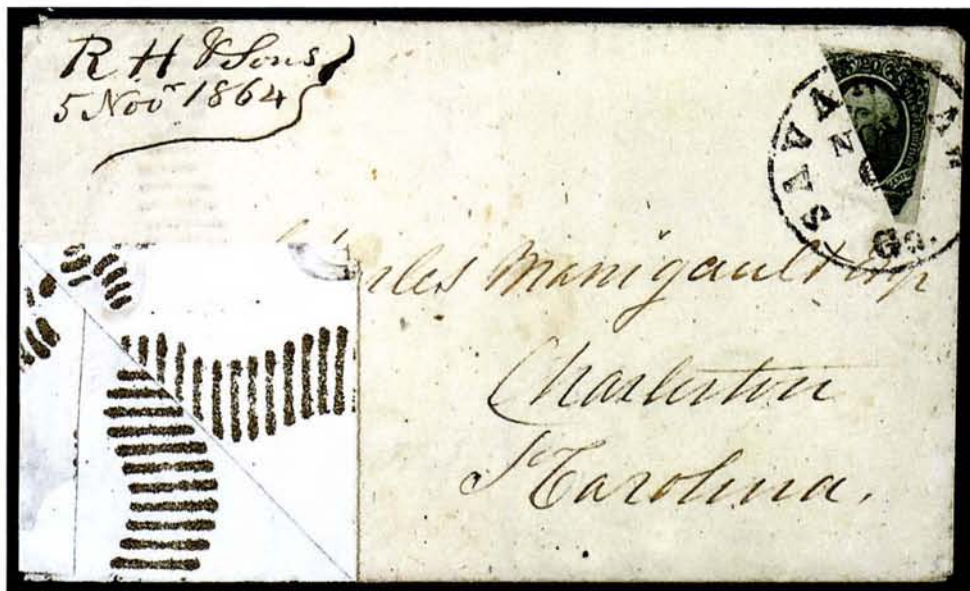 R H & Sons
5 Nov 1864
SAVA
Ga.
Charles Manigault Esq
Charleston
S Carolina.